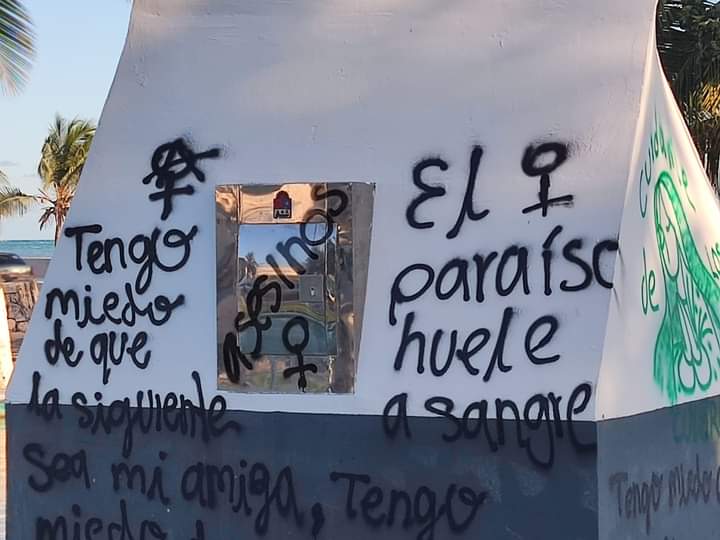 Tengo
miedo
de que
la siguiente
sea mi amiga, Tengo
miedo
asesinos
El
paraíso
huele
a sangre
cuida
de
Tengo miedo